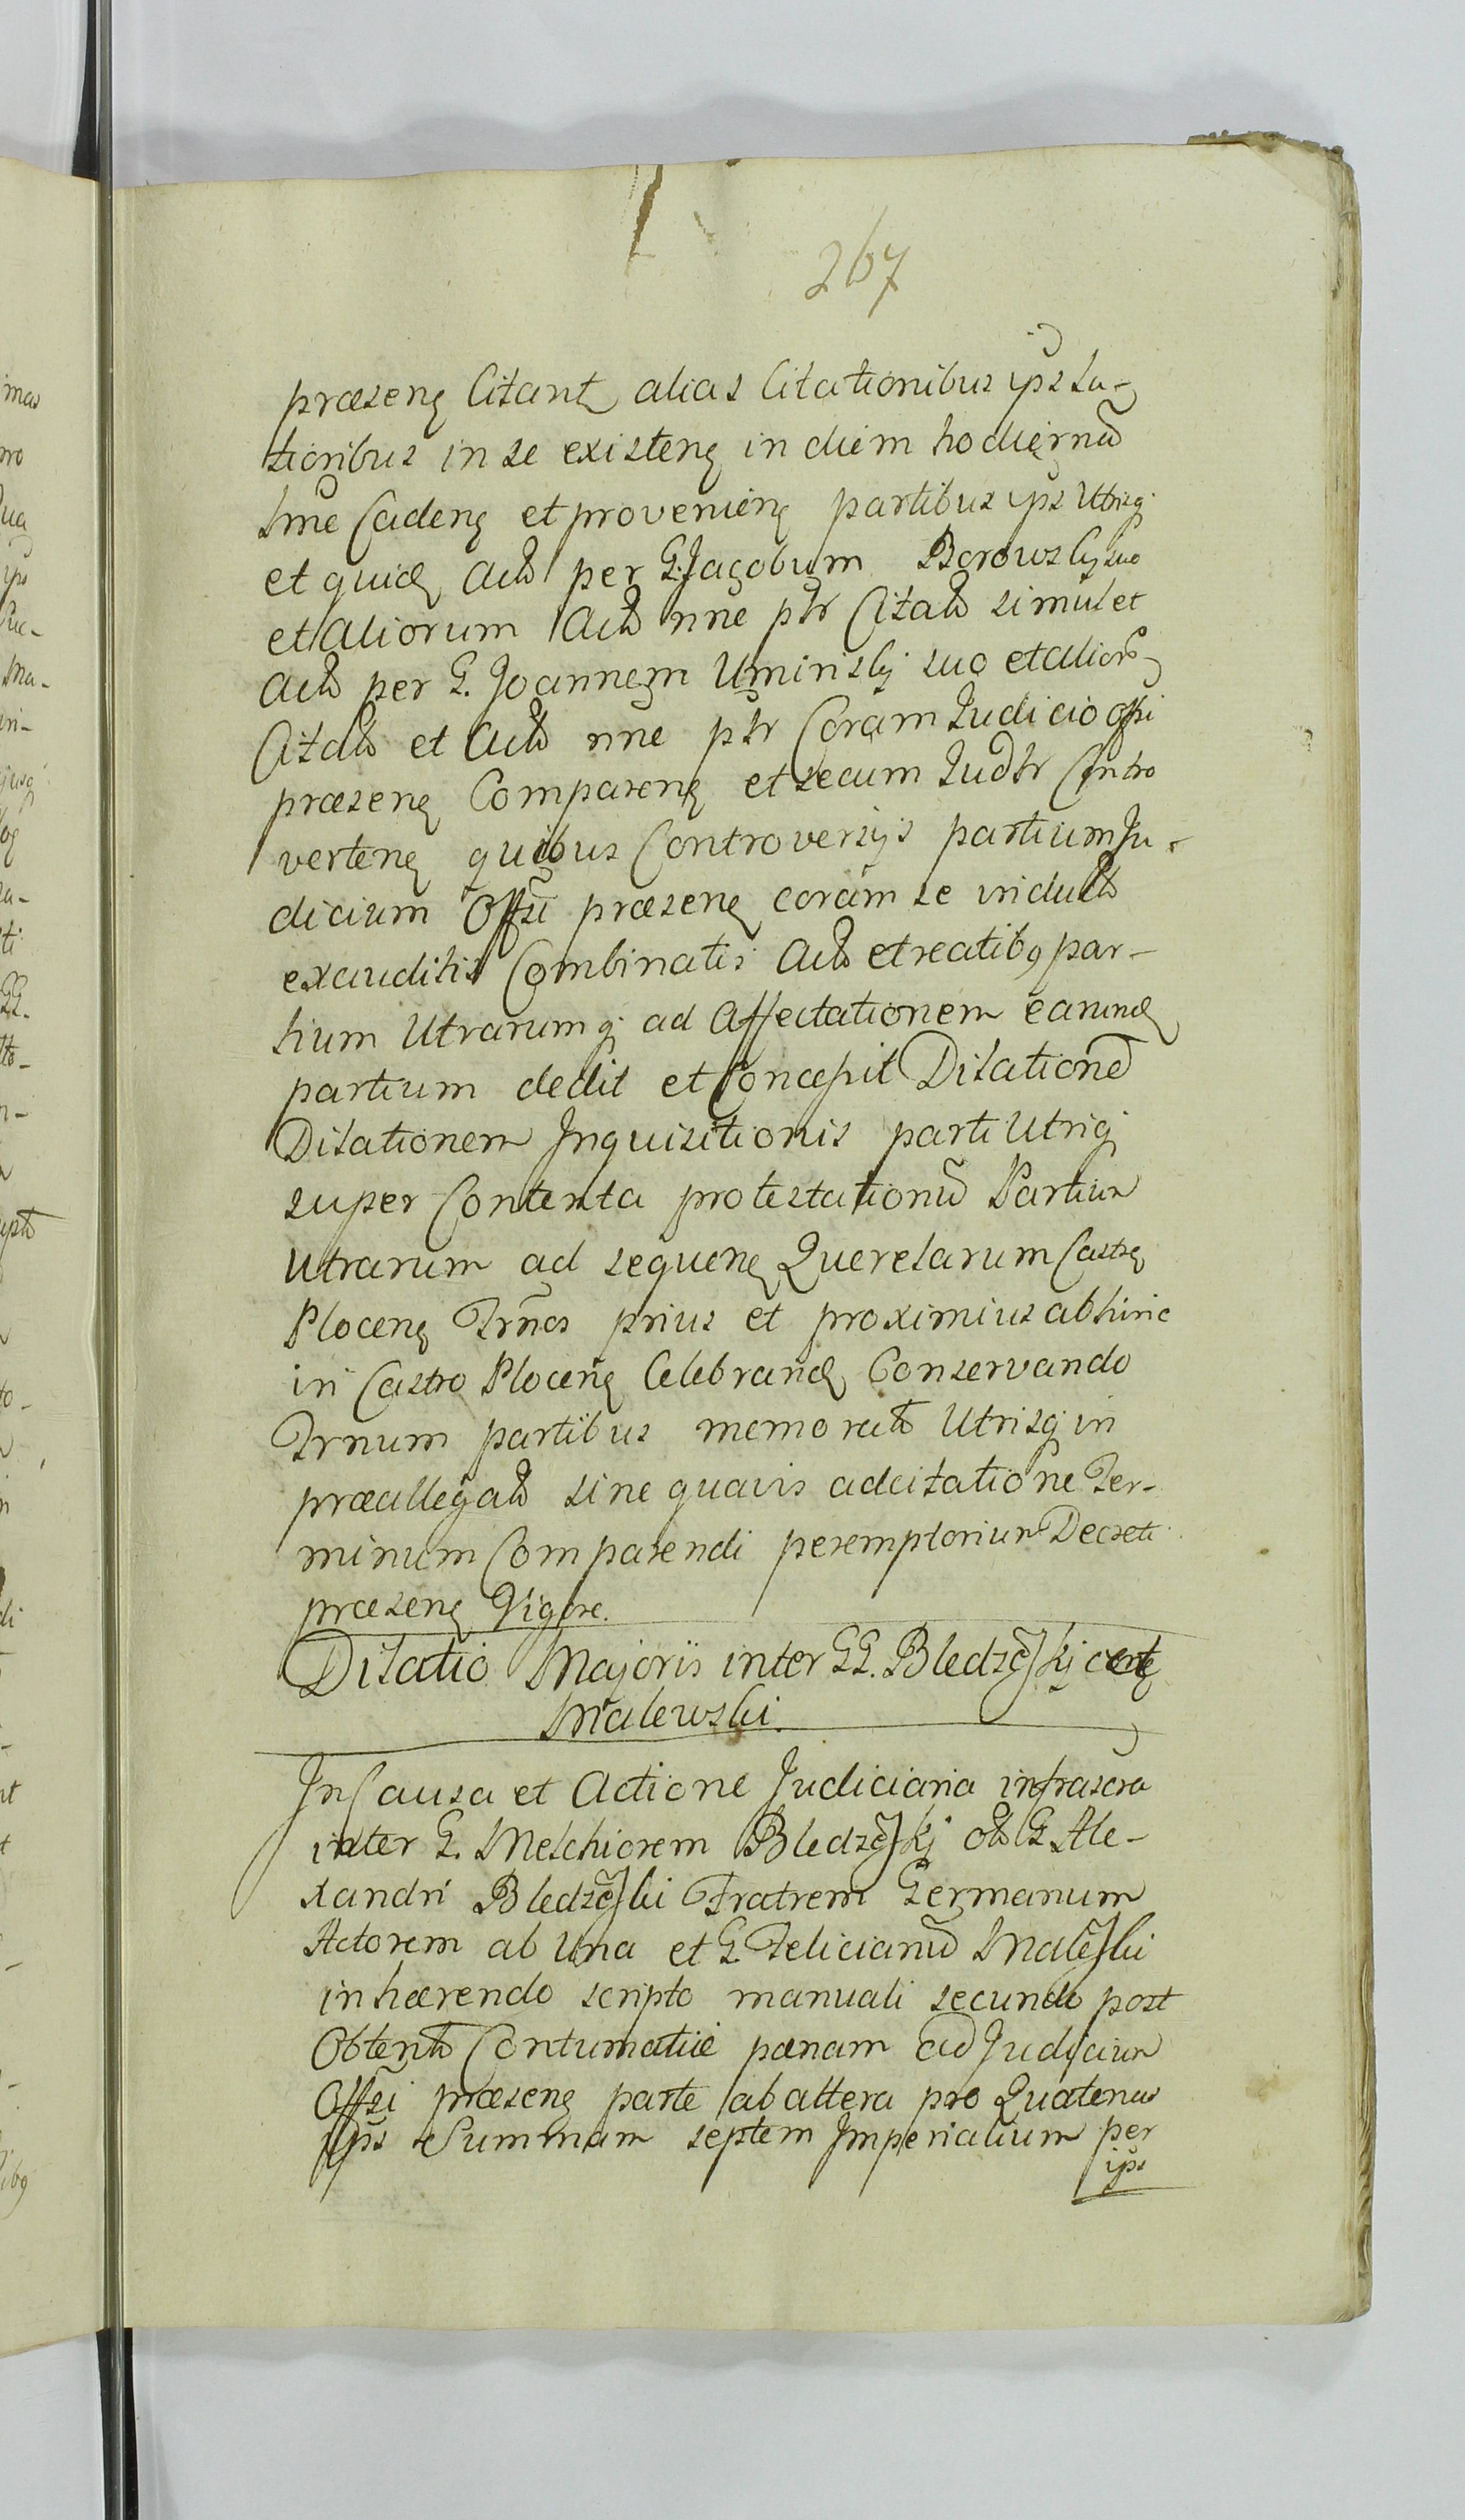 267
præsenę Citant alias Citationibus ips La-
tioribus in se existenę in diem hodiernũ
Lme Cadenę et provenienę partibus ips Utrisqȝ
et quidę Act per G. Jacobum Borowskj suo
et aliorum Act nne ptr Citat simul et
Act per G. Joannem Uminiskj suo et alior
Citat et Act nne ptr Coram Judicio offi
præsenę Comparenę et secum Judtr Contro
vertenę quibus Controversijs partium Ju-
dicium Offsi præsenę coram se induct
exauditis Combinatis Act et reatibȝ par-
tium Utrarumqȝ ad Affectationem earundę
partium dedit et Concepit Dilationẽ
Dilationem Inquisitionis parti Utriqȝ
super Contenta protestationũ Partium
Utrarum ad sequenę Querelarum Castrę
Plocenę Trnos prius et proximius abhinc
in Castro Plocenę Celebrandę Conservando
Trnum partibus memorat Utrisqȝ in
præallegat sine quavis adcitatione Ter-
minum Comparendi peremptorium Decreti
præsenę Vigore.
Dilatio Majoris inter GG. Bledzęskj
Malewski.
In Causa et Actione Judiciaria infrascra
inter G. Melchiorem Bledzęskj G. Ale-
xandri Bledzęski Fratrem Germanum
Actorem ab Una et G. Felicianũ Maleski
inhærendo scripto manuali secundo post
Obtent Contumatiæ pænam ad Judicium
Offsi præsenę parte ab altera pro Quatenus
Ips Summam septem Imperialium per
ips